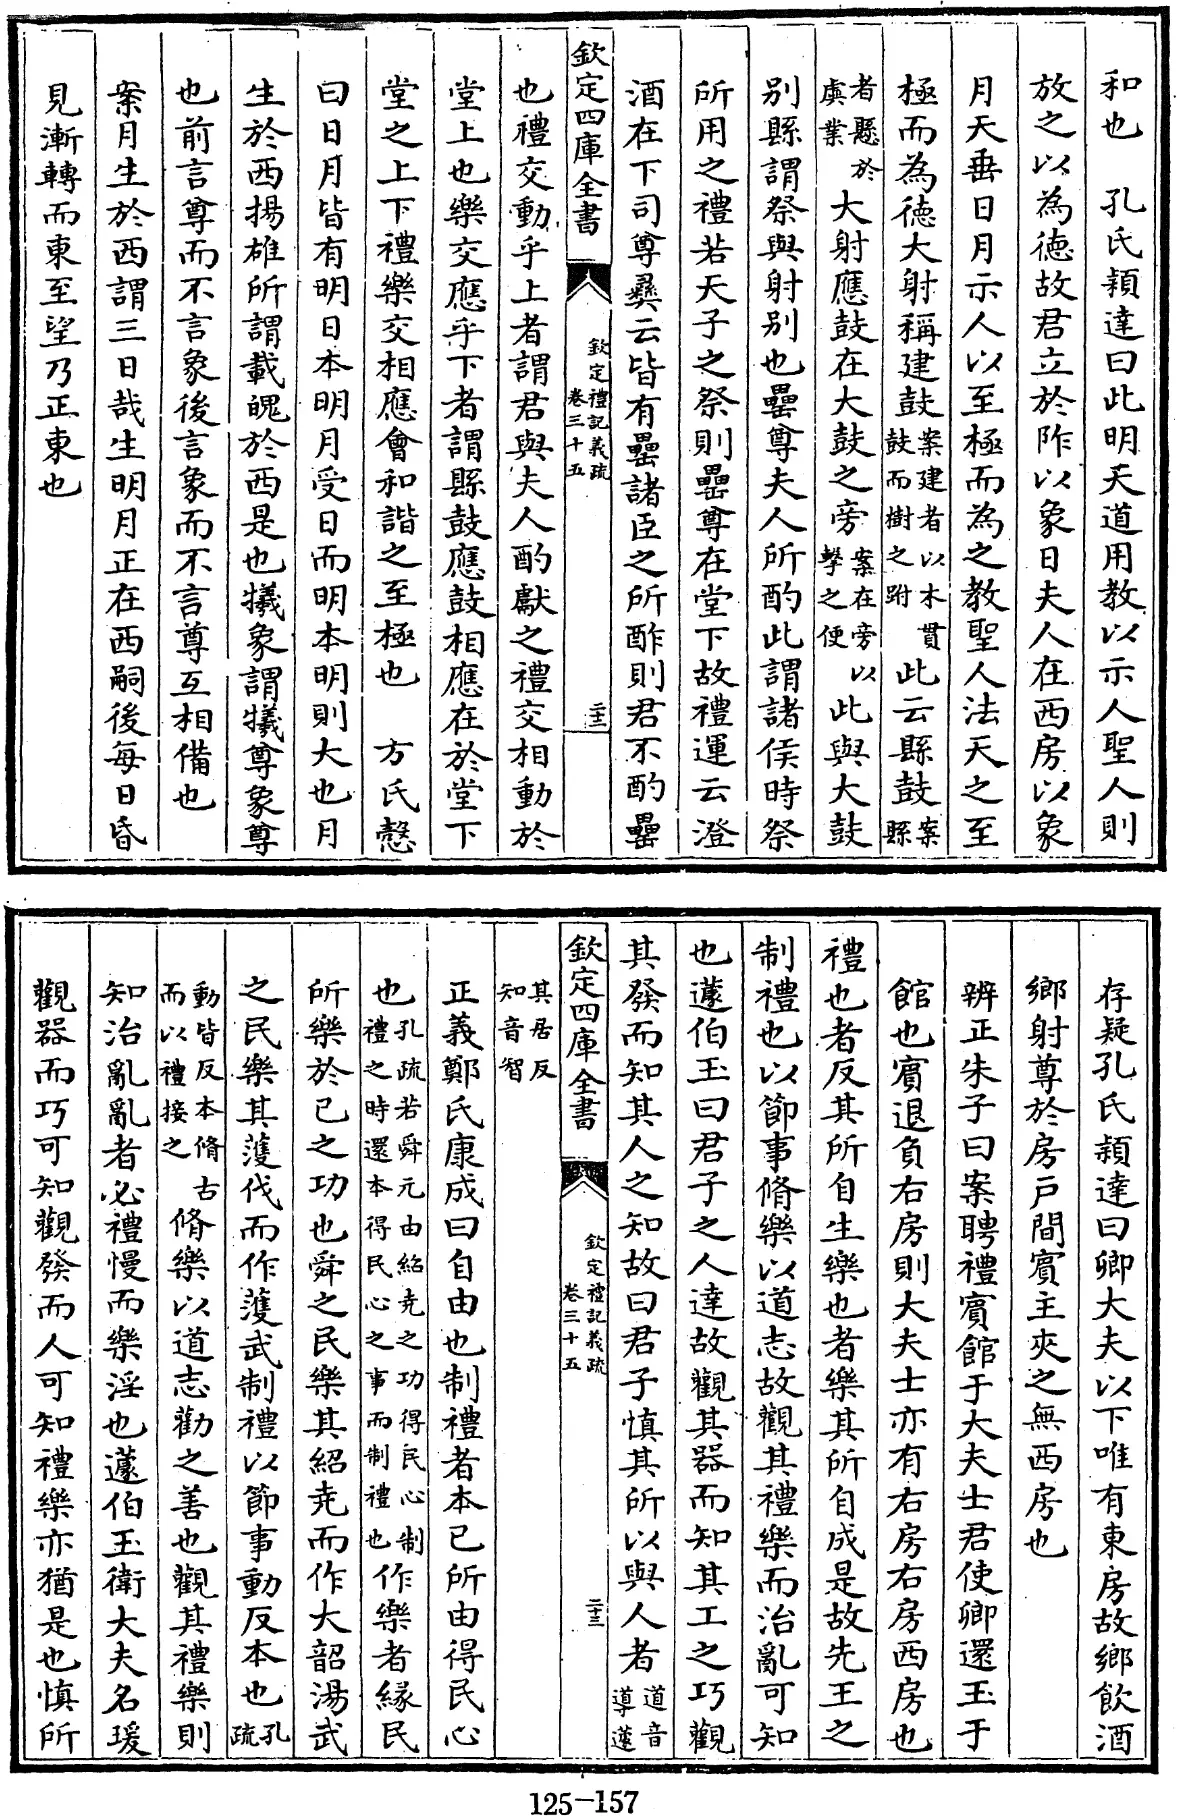 和也　孔氏穎達曰此明天道用教以示人聖人則
放之以為德故君立於阼以象日夫人在西房以象
月天垂日月示人以至極而為之教聖人法天之至
極而為德大射稱建鼓案建者以木貫鼓而樹之跗此云縣鼓案縣
者懸於虡業大射應鼓在大鼓之旁案在旁以擊之便此與大鼓
別縣謂祭與射別也罍尊夫人所酌此謂諸侯時祭
所用之禮若天子之祭則罍尊在堂下故禮運云澄
酒在下司尊彝云皆有罍諸臣之所酢則君不酌罍
欽定四庫全書　欽定禮記義疏卷三十五　二十二
也禮交動乎上者謂君與夫人酌獻之禮交相動於
堂上也樂交應乎下者謂縣鼓應鼓相應在於堂下
堂之上下禮樂交相應會和諧之至極也　方氏慤
曰日月皆有明日本明月受日而明本明則大也月
生於西揚雄所謂載魄於西是也犧象謂犧尊象尊
也前言尊而不言象後言象而不言尊互相備也
案月生於西謂三日哉生明月正在西嗣後每日昏
見漸轉而東至望乃正東也
存疑孔氏穎達曰卿大夫以下唯有東房故鄉飲酒
鄉射尊於房戶間賓主夾之無西房也
辨正朱子曰案聘禮賓館于大夫士君使卿還玉于
館也賓退負右房則大夫士亦有右房右房西房也
禮也者反其所自生樂也者樂其所自成是故先王之
制禮也以節事脩樂以道志故觀其禮樂而治亂可知
也蘧伯玉曰君子之人達故觀其器而知其工之巧觀
其發而知其人之知故曰君子慎其所以與人者道音導蘧
欽定四庫全書　欽定禮記義疏卷三十五　二十三
其居反知音智
正義鄭氏康成曰自由也制禮者本已所由得民心
也孔疏若舜元由紹堯之功得民心制禮之時還本得民心之事而制禮也作樂者緣民
所樂於已之功也舜之民樂其紹堯而作大韶湯武
之民樂其濩伐而作濩武制禮以節事動反本也孔疏
動皆反本脩古而以禮接之脩樂以道志勸之善也觀其禮樂則
知治亂亂者必禮慢而樂淫也蘧伯玉衛大夫名瑗
觀器而巧可知觀發而人可知禮樂亦猶是也慎所
125-157